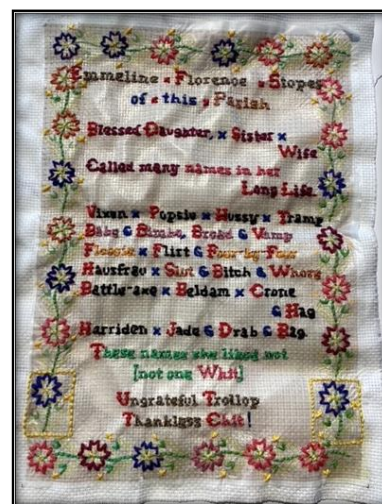 Emmeline x Florence x Stopes
of x this x Parish
Blessed Daughter, x Sister x
Wife
Called many names in her
Long Life.
Vixen x Popsie x Hussy x Tramp
Babe & Bimbo, Broad & Vamp
Floosie x Flirt & Four-by-Four
Hausfrau x Slut & Bitch & Whore
Battle-axe x Beldam x Crone
& Hag
Harriden x Jade & Drab & Bag.
These names she liked not
[not one Whit]
Ungrateful Trollop
Thankless Chit!